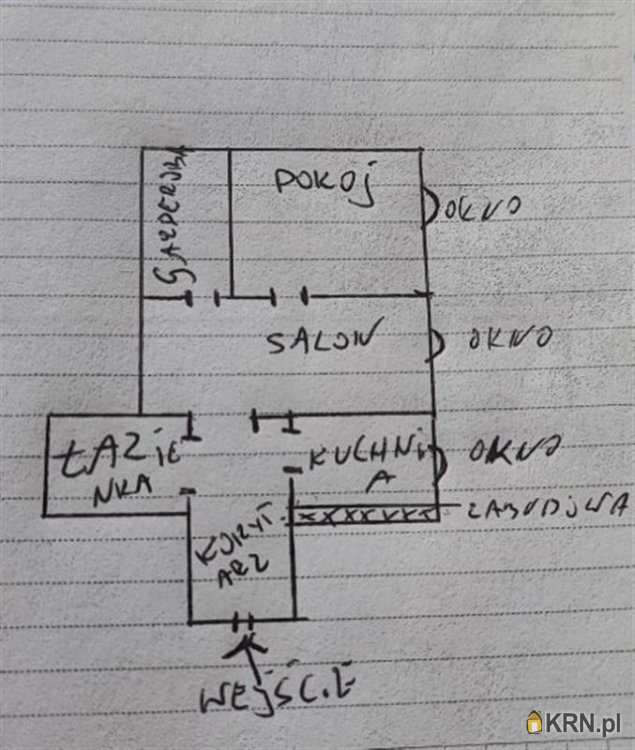 GARDEROBA
POKOJ
OKNO
SALON
OKNO
ŁAZIE
NKA
KUCHNI
A
OKNO
ZABUDOWA
KORYT
ARZ
WEJŚCIE
KRN.pl